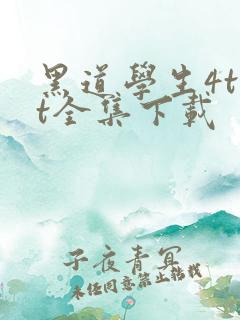 黑道學生4t
t全集下載
子夜青冥
未经同意禁止转载